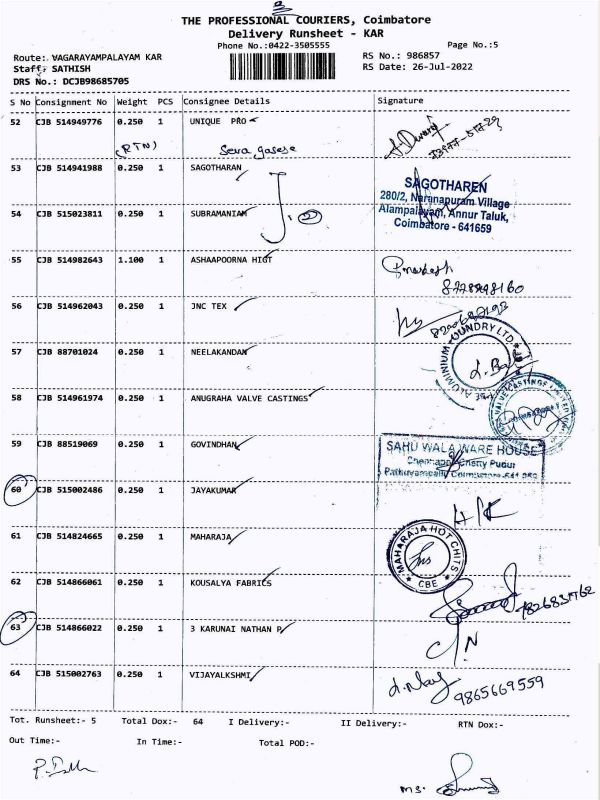 THE PROFESSIONAL COURIERS, Coimbatore
Delivery Runsheet - KAR
Phone No.:0422-3505555
Page No.:5
Route:. VAGARAYAMPALAYAM KAR
RS No.: 986857
Staff: SATHISH
RS Date: 26-Jul-2022
DRS No.: DCJB98685705
S No Consignment No Weight PCS Consignee Details Signature
52 CJB 514949776 0.250 1 UNIQUE PRO
(RTN)
53 CJB 514941988 0.250 1 SAGOTHARAN
SAGOTHAREN
280/2, Naranapuram Village
Alampalayam, Annur Taluk,
Coimbatore - 641659
54 CJB 515023811 0.250 1 SUBRAMANIAM
55 CJB 514982643 1.100 1 ASHAAPOORNA HIGT
56 CJB 514962043 0.250 1 JNC TEX
57 CJB 88701024 0.250 1 NEELAKANDAN
ALUMINIUM FOUNDRY LTD
58 CJB 514961974 0.250 1 ANUGRAHA VALVE CASTINGS
VALVE CASTINGS LIMITED
59 CJB 88519069 0.250 1 GOVINDHAN
SAHU WALA WARE HOUSE
Chetty Pudur
60 CJB 515002486 0.250 1 JAYAKUMAR
61 CJB 514824665 0.250 1 MAHARAJA
MAHARAJA HOT CHITS
CBE
62 CJB 514866061 0.250 1 KOUSALYA FABRICS
63 CJB 514866022 0.250 1 3 KARUNAI NATHAN P
C/N
64 CJB 515002763 0.250 1 VIJAYALKSHMI
9865669559
Tot. Runsheet:- 5 Total Dox:- 64 I Delivery:- II Delivery:- RTN Dox:-
Out Time:- In Time:- Total POD:-